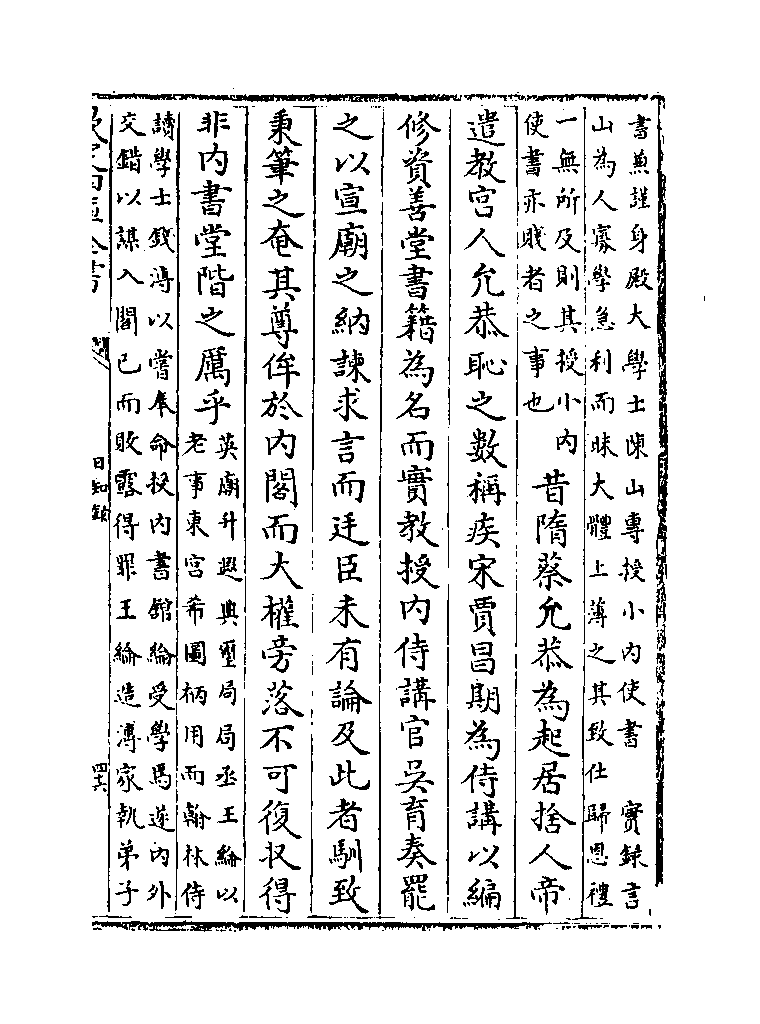 書兼謹身殿大學士陳山專授小内使書　實録言
山為人寡學急利而昧大體上薄之其致仕歸恩禮
一無所及則其授小内
使書亦賤者之事也
昔隋蔡允恭為起居捨人帝
遣教宫人允恭恥之數稱疾宋賈昌期為侍講以編
修資善堂書籍為名而實教授内侍講官吳育奏罷
之以宣廟之納諫求言而廷臣未有論及此者馴致
秉筆之奄其尊侔於内閣而大權旁落不可復収得
非内書堂階之厲乎
英廟升遐典璽局局丞王綸以
老事東宫希圖柄用而翰林侍
讀學士錢溥以嘗奉命授内書館綸受學焉遂内外
交錯以謀入閣已而敗露得罪王綸造溥家執弟子
欽定四庫全書
日知録
四六